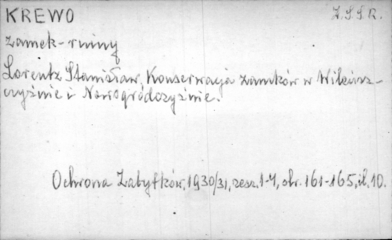 KREWO Z.S.S.R.
zamek-ruiny
Lorentz Stanisław, Konserwacja zamków w Wileńsz-
czyźnie i Nowogródczyźnie.
Ochrona Zabytków, 1930/31, zesz. 1-4, str. 161-165, il. 10.